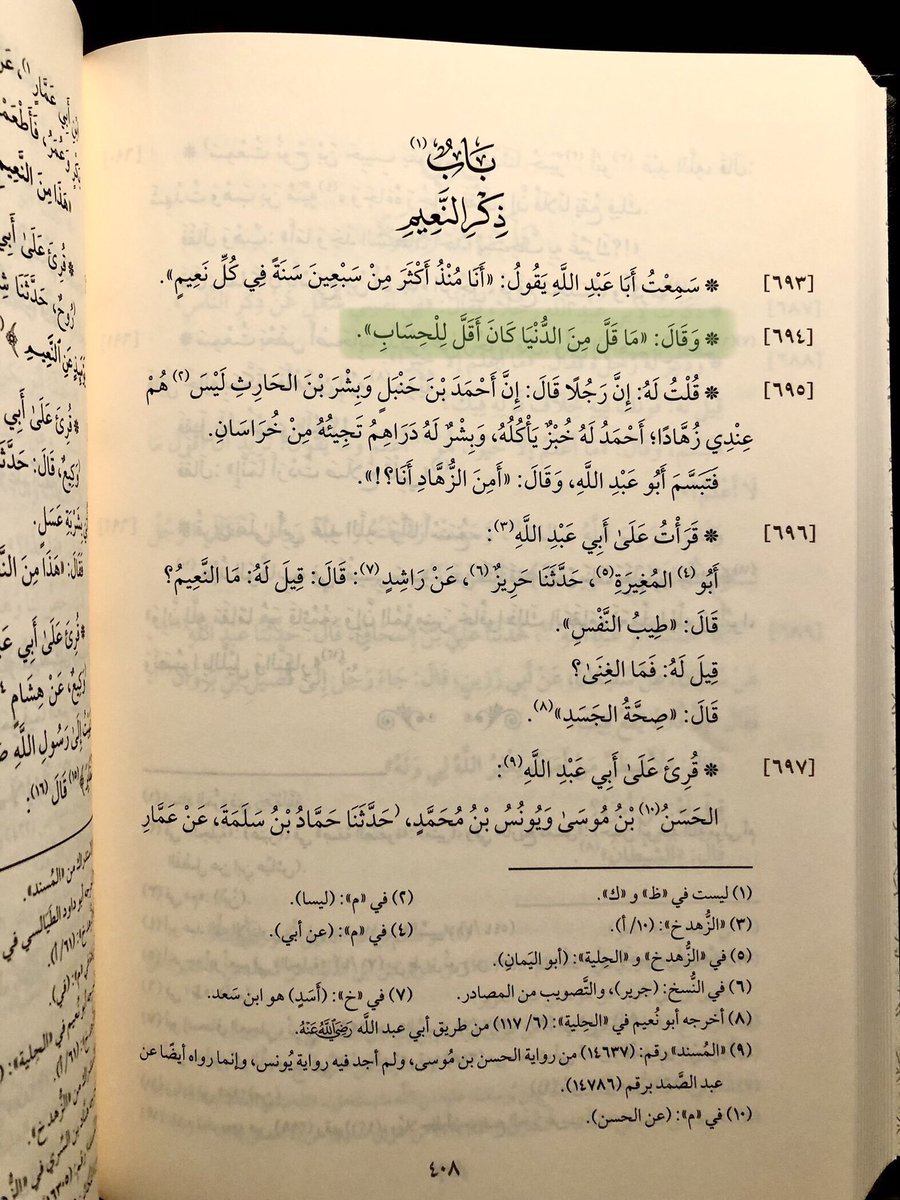 بَابُ (١)
ذِكْرِ النَّعِيمِ
[٦٩٣] * سَمِعْتُ أَبَا عَبْدِ اللَّهِ يَقُولُ: «أَنَا مُنْذُ أَكْثَرَ مِنْ سَبْعِينَ سَنَةً فِي كُلِّ نَعِيمٍ».
[٦٩٤] * وَقَالَ: «مَا قَلَّ مِنَ الدُّنْيَا كَانَ أَقَلَّ لِلْحِسَابِ».
[٦٩٥] * قُلْتُ لَهُ: إِنَّ رَجُلًا قَالَ: إِنَّ أَحْمَدَ بْنَ حَنْبَلٍ وَبِشْرَ بْنَ الحَارِثِ لَيْسَ (٢) هُمْ
عِنْدِي زُهَّادًا؛ أَحْمَدُ لَهُ خُبْزٌ يَأْكُلُهُ، وَبِشْرٌ لَهُ دَرَاهِمُ تَجِيئُهُ مِنْ خُرَاسَانِ.
فَتَبَسَّمَ أَبُو عَبْدِ اللَّهِ، وَقَالَ: «أَمِنَ الزُّهَّادِ أَنَا؟!».
[٦٩٦] * قَرَأْتُ عَلَىٰ أَبِي عَبْدِ اللَّهِ (٣):
أَبُو (٤) المُغِيرَةِ (٥)، حَدَّثَنَا حَرِيزٌ (٦)، عَنْ رَاشِدٍ (٧): قَالَ: قِيلَ لَهُ: مَا النَّعِيمُ؟
قَالَ: «طِيبُ النَّفْسِ».
قِيلَ لَهُ: فَمَا الغِنَىٰ؟
قَالَ: «صِحَّةُ الجَسَدِ» (٨).
[٦٩٧] * قُرِئَ عَلَىٰ أَبِي عَبْدِ اللَّهِ (٩):
الحَسَنُ (١٠) بْنُ مُوسَىٰ وَيُونُسُ بْنُ مُحَمَّدٍ، (حَدَّثَنَا حَمَّادُ بْنُ سَلَمَةَ، عَنْ عَمَّارِ
(١) ليست في «ظ» و «ك». (٢) في «م»: (ليسا).
(٣) «الزُّهد خ»: (١٠/ أ). (٤) في «م»: (عن أبي).
(٥) في «الزُّهد خ» و «الحِلية»: (أبو اليَمانِ).
(٦) في النُّسخ: (جرير)، والتَّصويب من المصادر. (٧) في «خ»: (أَسَدٍ) هو ابن سَعد.
(٨) أخرجه أبو نُعيم في «الحِلية»: (٦/ ١١٧) من طريق أبي عبد الله رَضِيَ اللَّهُ عَنْهُ.
(٩) «المُسند» رقم: (١٤٦٣٧) من رواية الحسن بن مُوسى، ولم أجد فيه رواية يُونس، وإنما رواه أيضًا عن
عبد الصَّمد برقم (١٤٧٨٦).
(١٠) في «م»: (عن الحسن).
٤٠٨